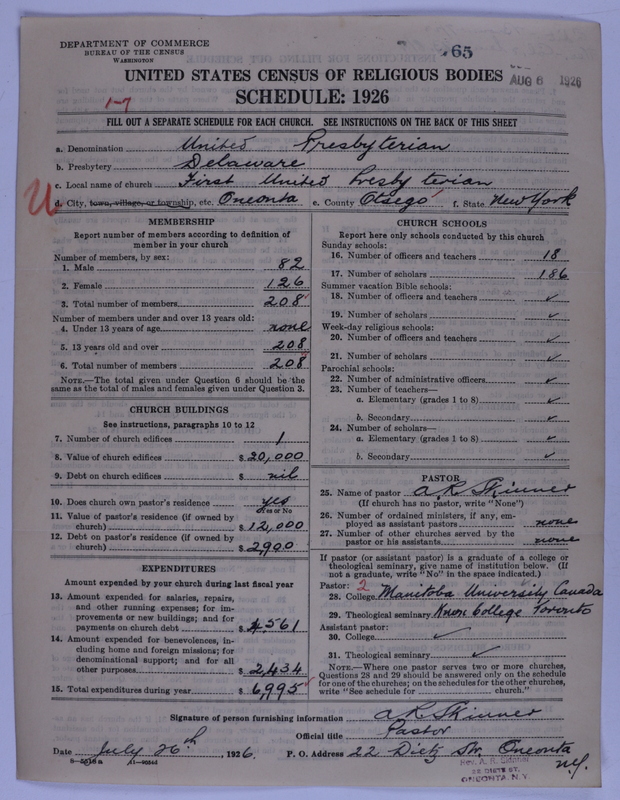 65
DEPARTMENT OF COMMERCE
BUREAU OF THE CENSUS
WASHINGTON
AUG 6 1926
UNITED STATES CENSUS OF RELIGIOUS BODIES
SCHEDULE: 1926
1-7
FILL OUT A SEPARATE SCHEDULE FOR EACH CHURCH. SEE INSTRUCTIONS ON THE BACK OF THIS SHEET
a. Denomination United Presbyterian
b. Presbytery Delaware
c. Local name of church First United Presbyterian
U
d. City, town, village, or township, etc. Oneonta e. County Otsego f. State New York
MEMBERSHIP
Report number of members according to definition of
member in your church
Number of members, by sex:
1. Male 82
2. Female 126
3. Total number of members 208
Number of members under and over 13 years old:
4. Under 13 years of age none
5. 13 years old and over 208
6. Total number of members 208
NOTE.—The total given under Question 6 should be the
same as the total of males and females given under Question 3.
CHURCH BUILDINGS
See instructions, paragraphs 10 to 12
7. Number of church edifices 1
8. Value of church edifices $ 20,000
9. Debt on church edifices $ nil
10. Does church own pastor's residence yes
Yes or No
11. Value of pastor's residence (if owned by
church) $ 12,000
12. Debt on pastor's residence (if owned by
church) $ 2,900
EXPENDITURES
Amount expended by your church during last fiscal year
13. Amount expended for salaries, repairs,
and other running expenses; for im-
provements or new buildings; and for
payments on church debt $ 4,561
14. Amount expended for benevolences, in-
cluding home and foreign missions; for
denominational support; and for all
other purposes $ 2,434
15. Total expenditures during year $ 6,995
CHURCH SCHOOLS
Report here only schools conducted by this church
Sunday schools:
16. Number of officers and teachers 18
17. Number of scholars 186
Summer vacation Bible schools:
18. Number of officers and teachers ✓
19. Number of scholars ✓
Week-day religious schools:
20. Number of officers and teachers ✓
21. Number of scholars ✓
Parochial schools:
22. Number of administrative officers ✓
23. Number of teachers—
a. Elementary (grades 1 to 8) ✓
b. Secondary ✓
24. Number of scholars—
a. Elementary (grades 1 to 8) ✓
b. Secondary ✓
PASTOR
25. Name of pastor A. R. Skinner
(If church has no pastor, write "None")
26. Number of ordained ministers, if any, em-
ployed as assistant pastors none
27. Number of other churches served by the
pastor or his assistants none
If pastor (or assistant pastor) is a graduate of a college or
theological seminary, give name of institution below. (If
not a graduate, write "No" in the space indicated.)
Pastor: 2
28. College Manitoba University Canada
29. Theological seminary Knox College Toronto
Assistant pastor:
30. College ✓
31. Theological seminary ✓
NOTE.—Where one pastor serves two or more churches,
Questions 28 and 29 should be answered only on the schedule
for one of the churches; on the schedules for the other churches,
write "See schedule for church."
Signature of person furnishing information A. R. Skinner
Official title Pastor
Date July 26th, 1926. P. O. Address 22 Dietz Str. Oneonta
N.Y.
Rev. A. R. Skinner
22 DIETZ ST.
ONEONTA, N.Y.